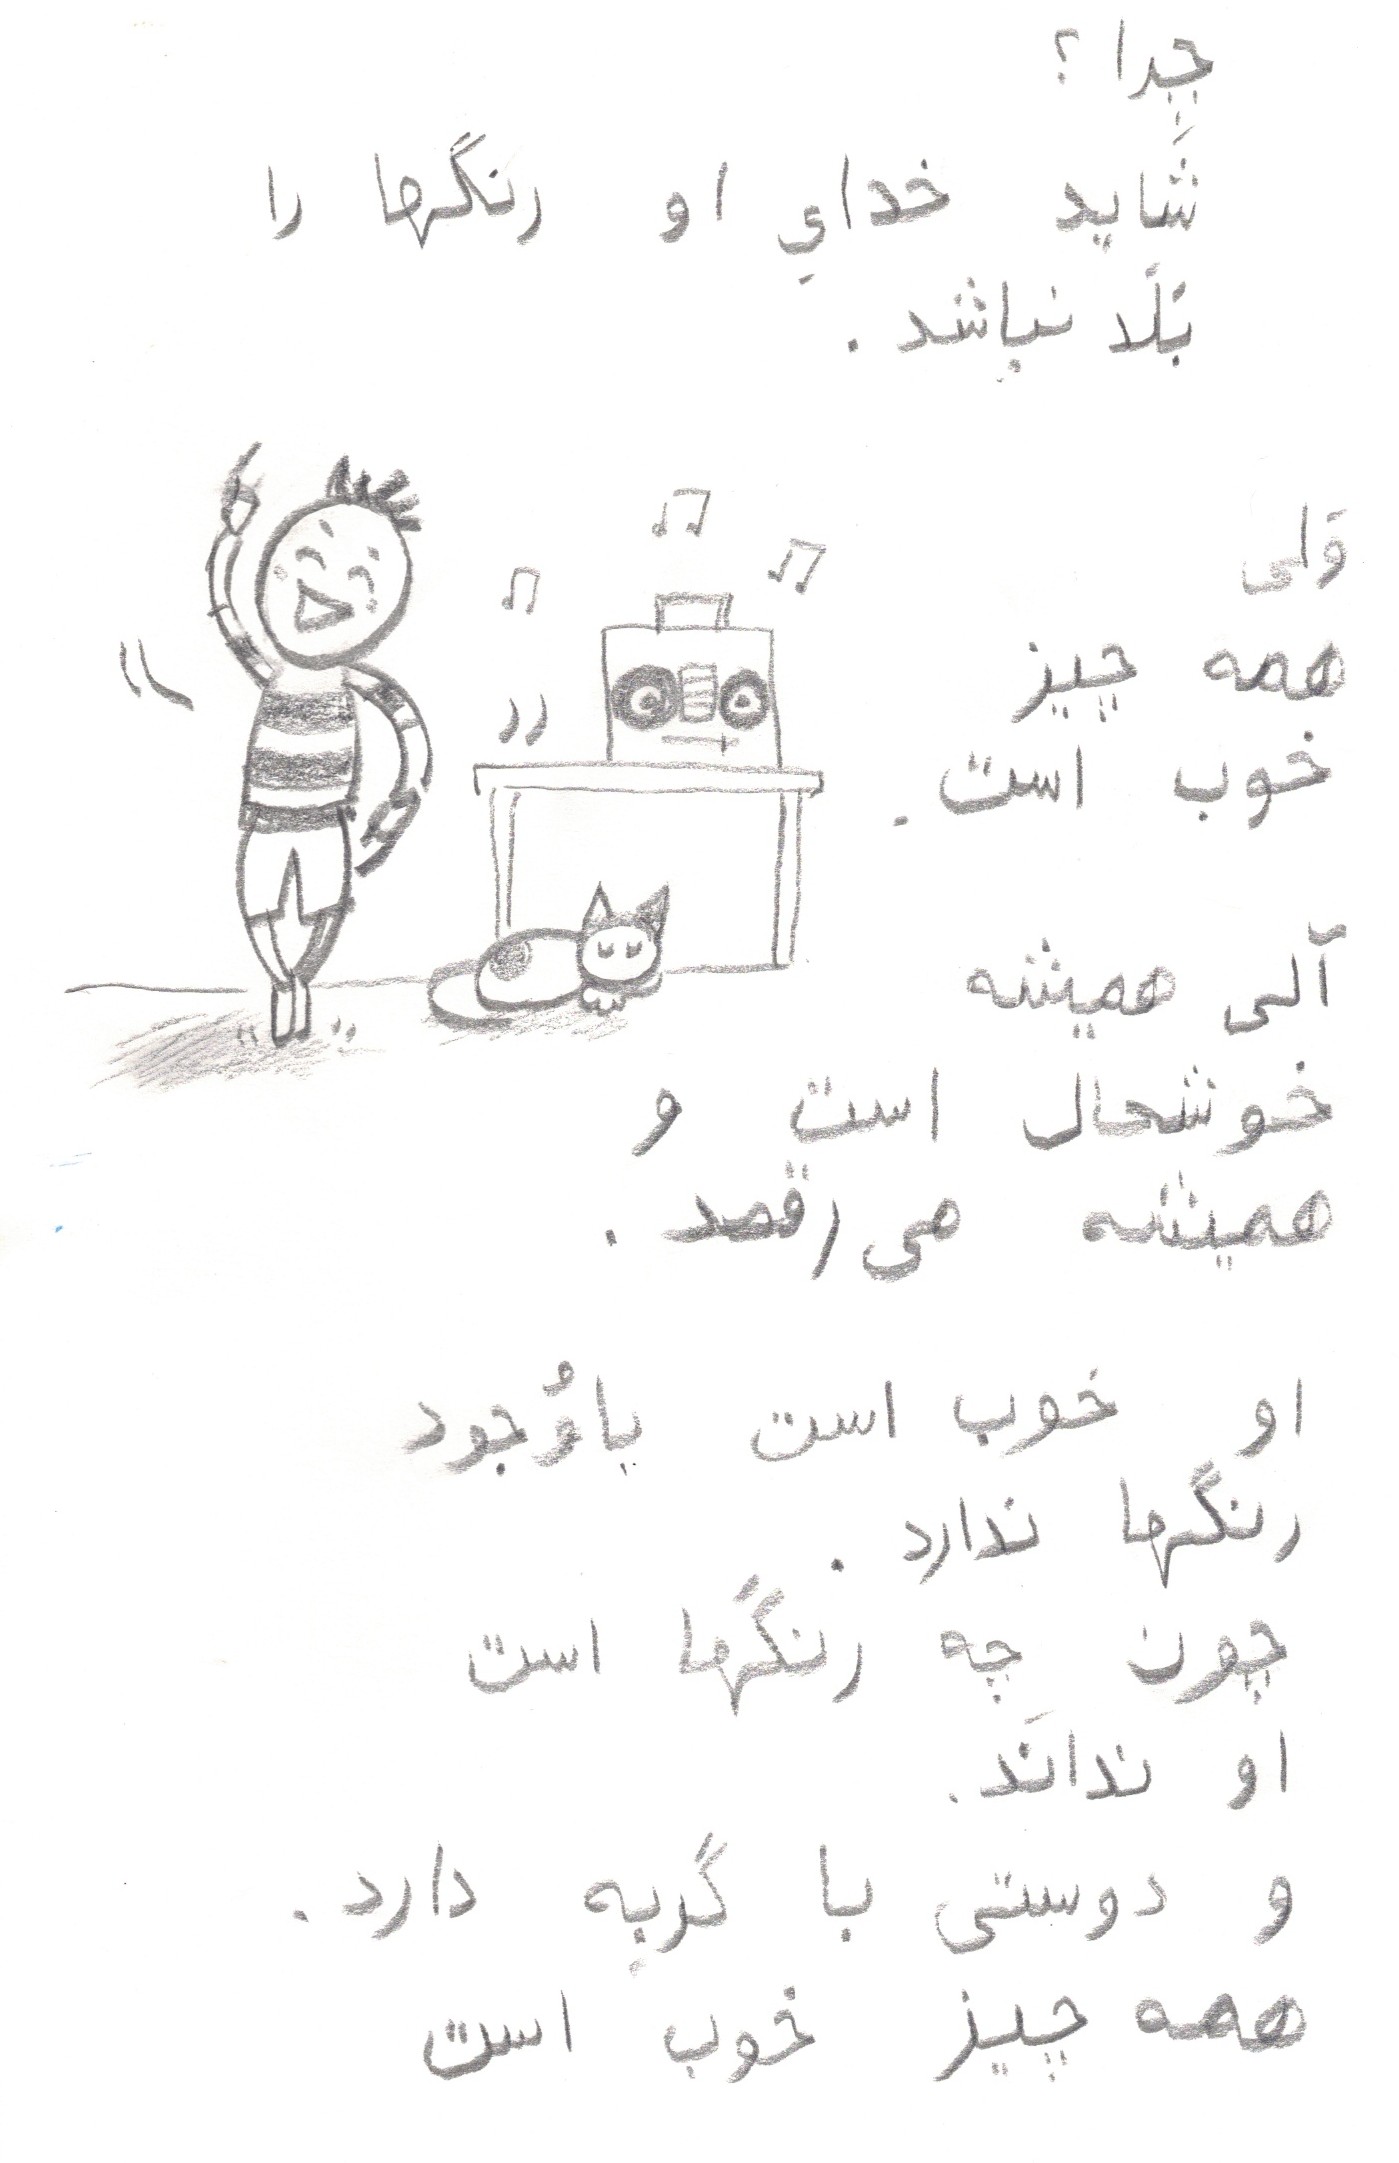 چرا ؟
شَاید خدایِ او رنگها را
بَلَد نباشد .
وَلی
همه چیز
خوب است .
آلی همیشه
خوشحال است و
همیشه می رقصد .
او خوب است باوُجود
رنگها ندارد .
چون چه رنگها است
او ندانَد .
و دوستی با گربه دارد .
همه چیز خوب است